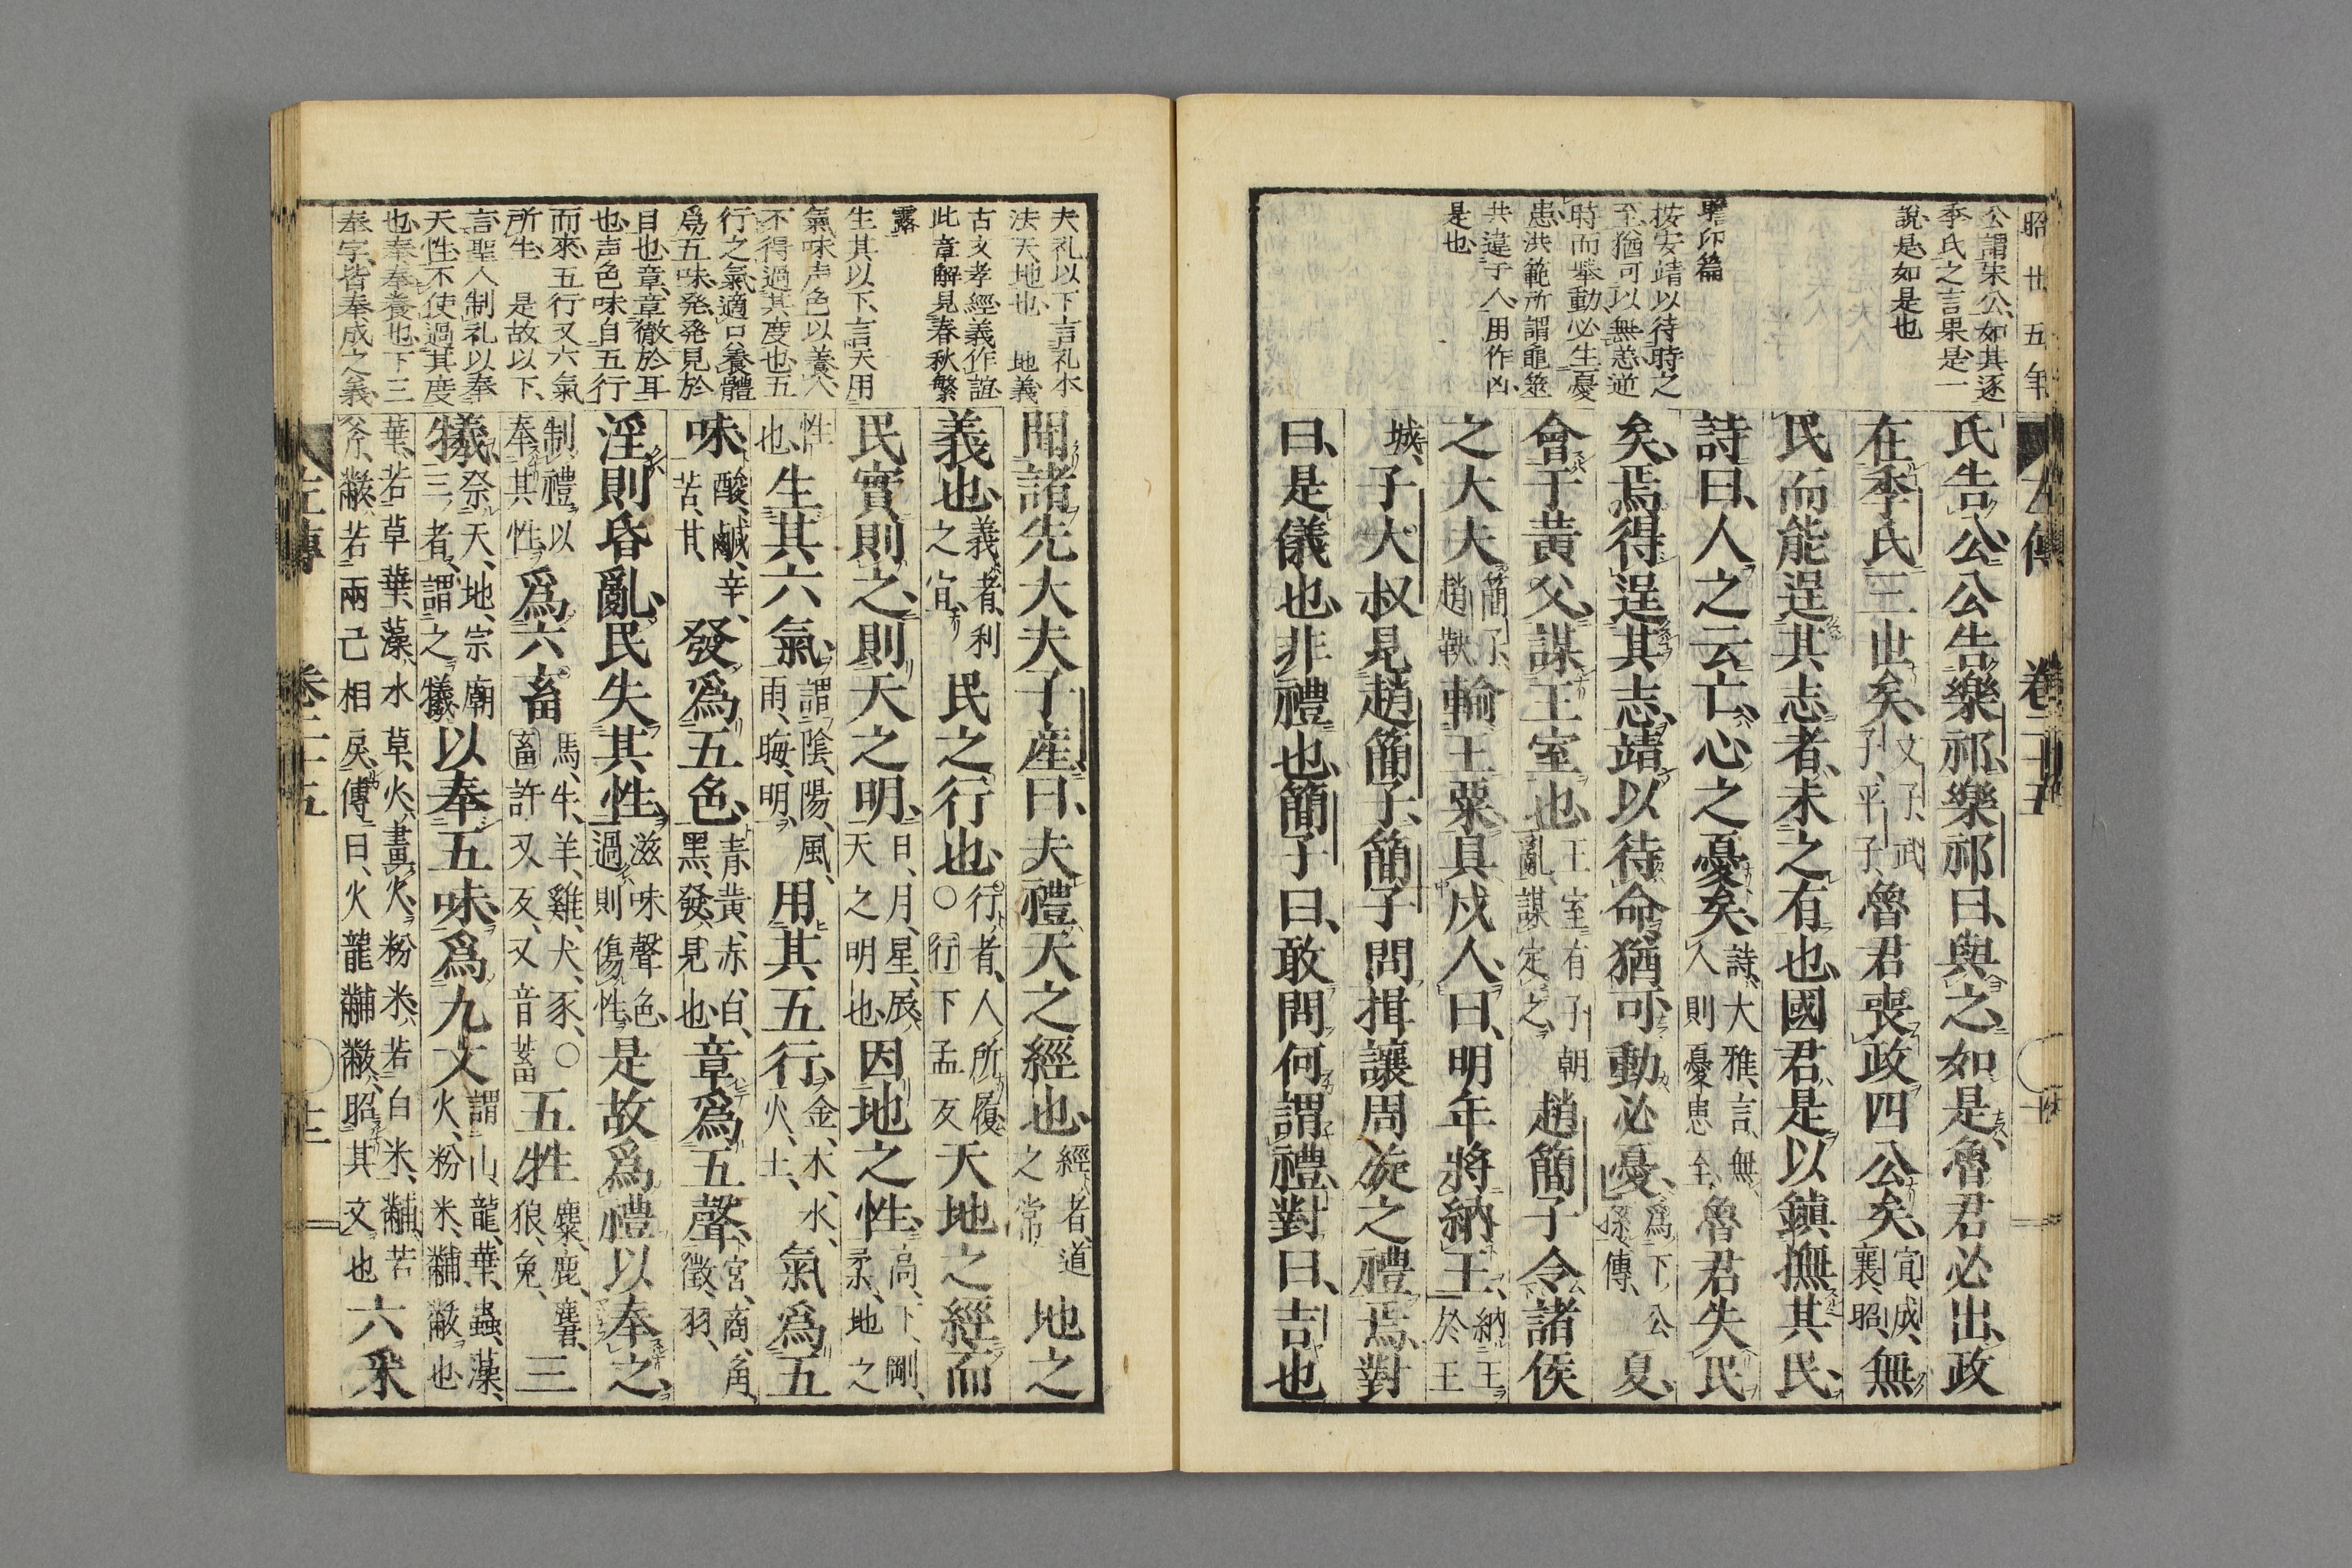 昭廿五年
左傳 卷二十五
公謂朱公如其逐
季氏之言果是一
說是如是也
聖印篇
按安靖以待時之
至猶可以無恙逆
時而舉動必生憂
患洪範所謂龜筮
共違于人用作凶
是也
氏告公公告樂祁樂祁曰與之如是魯君必出政
在季氏三世矣文子武子平子魯君喪政四公矣宣成襄昭無
民而能逞其志者未之有也國君是以鎮撫其民
詩曰人之云亡心之憂矣詩大雅言無人則憂患至魯君失民
矣焉得逞其志靖以待命猶可動必憂爲下公孫傳夏
會于黃父謀王室也王室有子朝亂謀定之趙簡子令諸侯
之大夫簡子趙鞅輸王粟具戍人曰明年將納王納王於王
城子大叔見趙簡子簡子問揖讓周旋之禮焉對
曰是儀也非禮也簡子曰敢問何謂禮對曰吉也
夫礼以下言礼水
法天地也 地義
古文孝經義作誼
此章解見春秋繁
露
生其以下言天用
氣味声色以養人
不得過其度也五
行之氣適口養體
爲五味発発見於
目也章章徹於耳
也声色味自五行
而來五行又六氣
所生 是故以下
言聖人制礼以奉
天性不使過其度
也奉奉養也下三
奉字皆奉成之義
聞諸先大夫子產曰夫禮天之經也經者道之常地之
義也義者利之宜民之行也行者人所履○行下孟反天地之經而
民實則之則天之明日月星辰天之明也因地之性高下剛柔地之
性也生其六氣謂陰陽風雨晦明用其五行金木水火土氣爲五
味酸鹹辛苦甘發爲五色青黃赤白黑發見也章爲五聲宮商角徵羽
淫則昏亂民失其性滋味聲色過則傷性是故爲禮以奉之
制禮以奉其性爲六畜馬牛羊雞犬豕○畜許又反又音蓄五牲麋鹿麏狼兔三
犧祭天地宗廟三者謂之犧以奉五味爲九文謂山龍華蟲藻火粉米黼黻也
華若草華藻水草火畫火粉米若白米黼若斧黻若兩己相戾傳曰火龍黼黻昭其文也六采
左傳 卷二十五